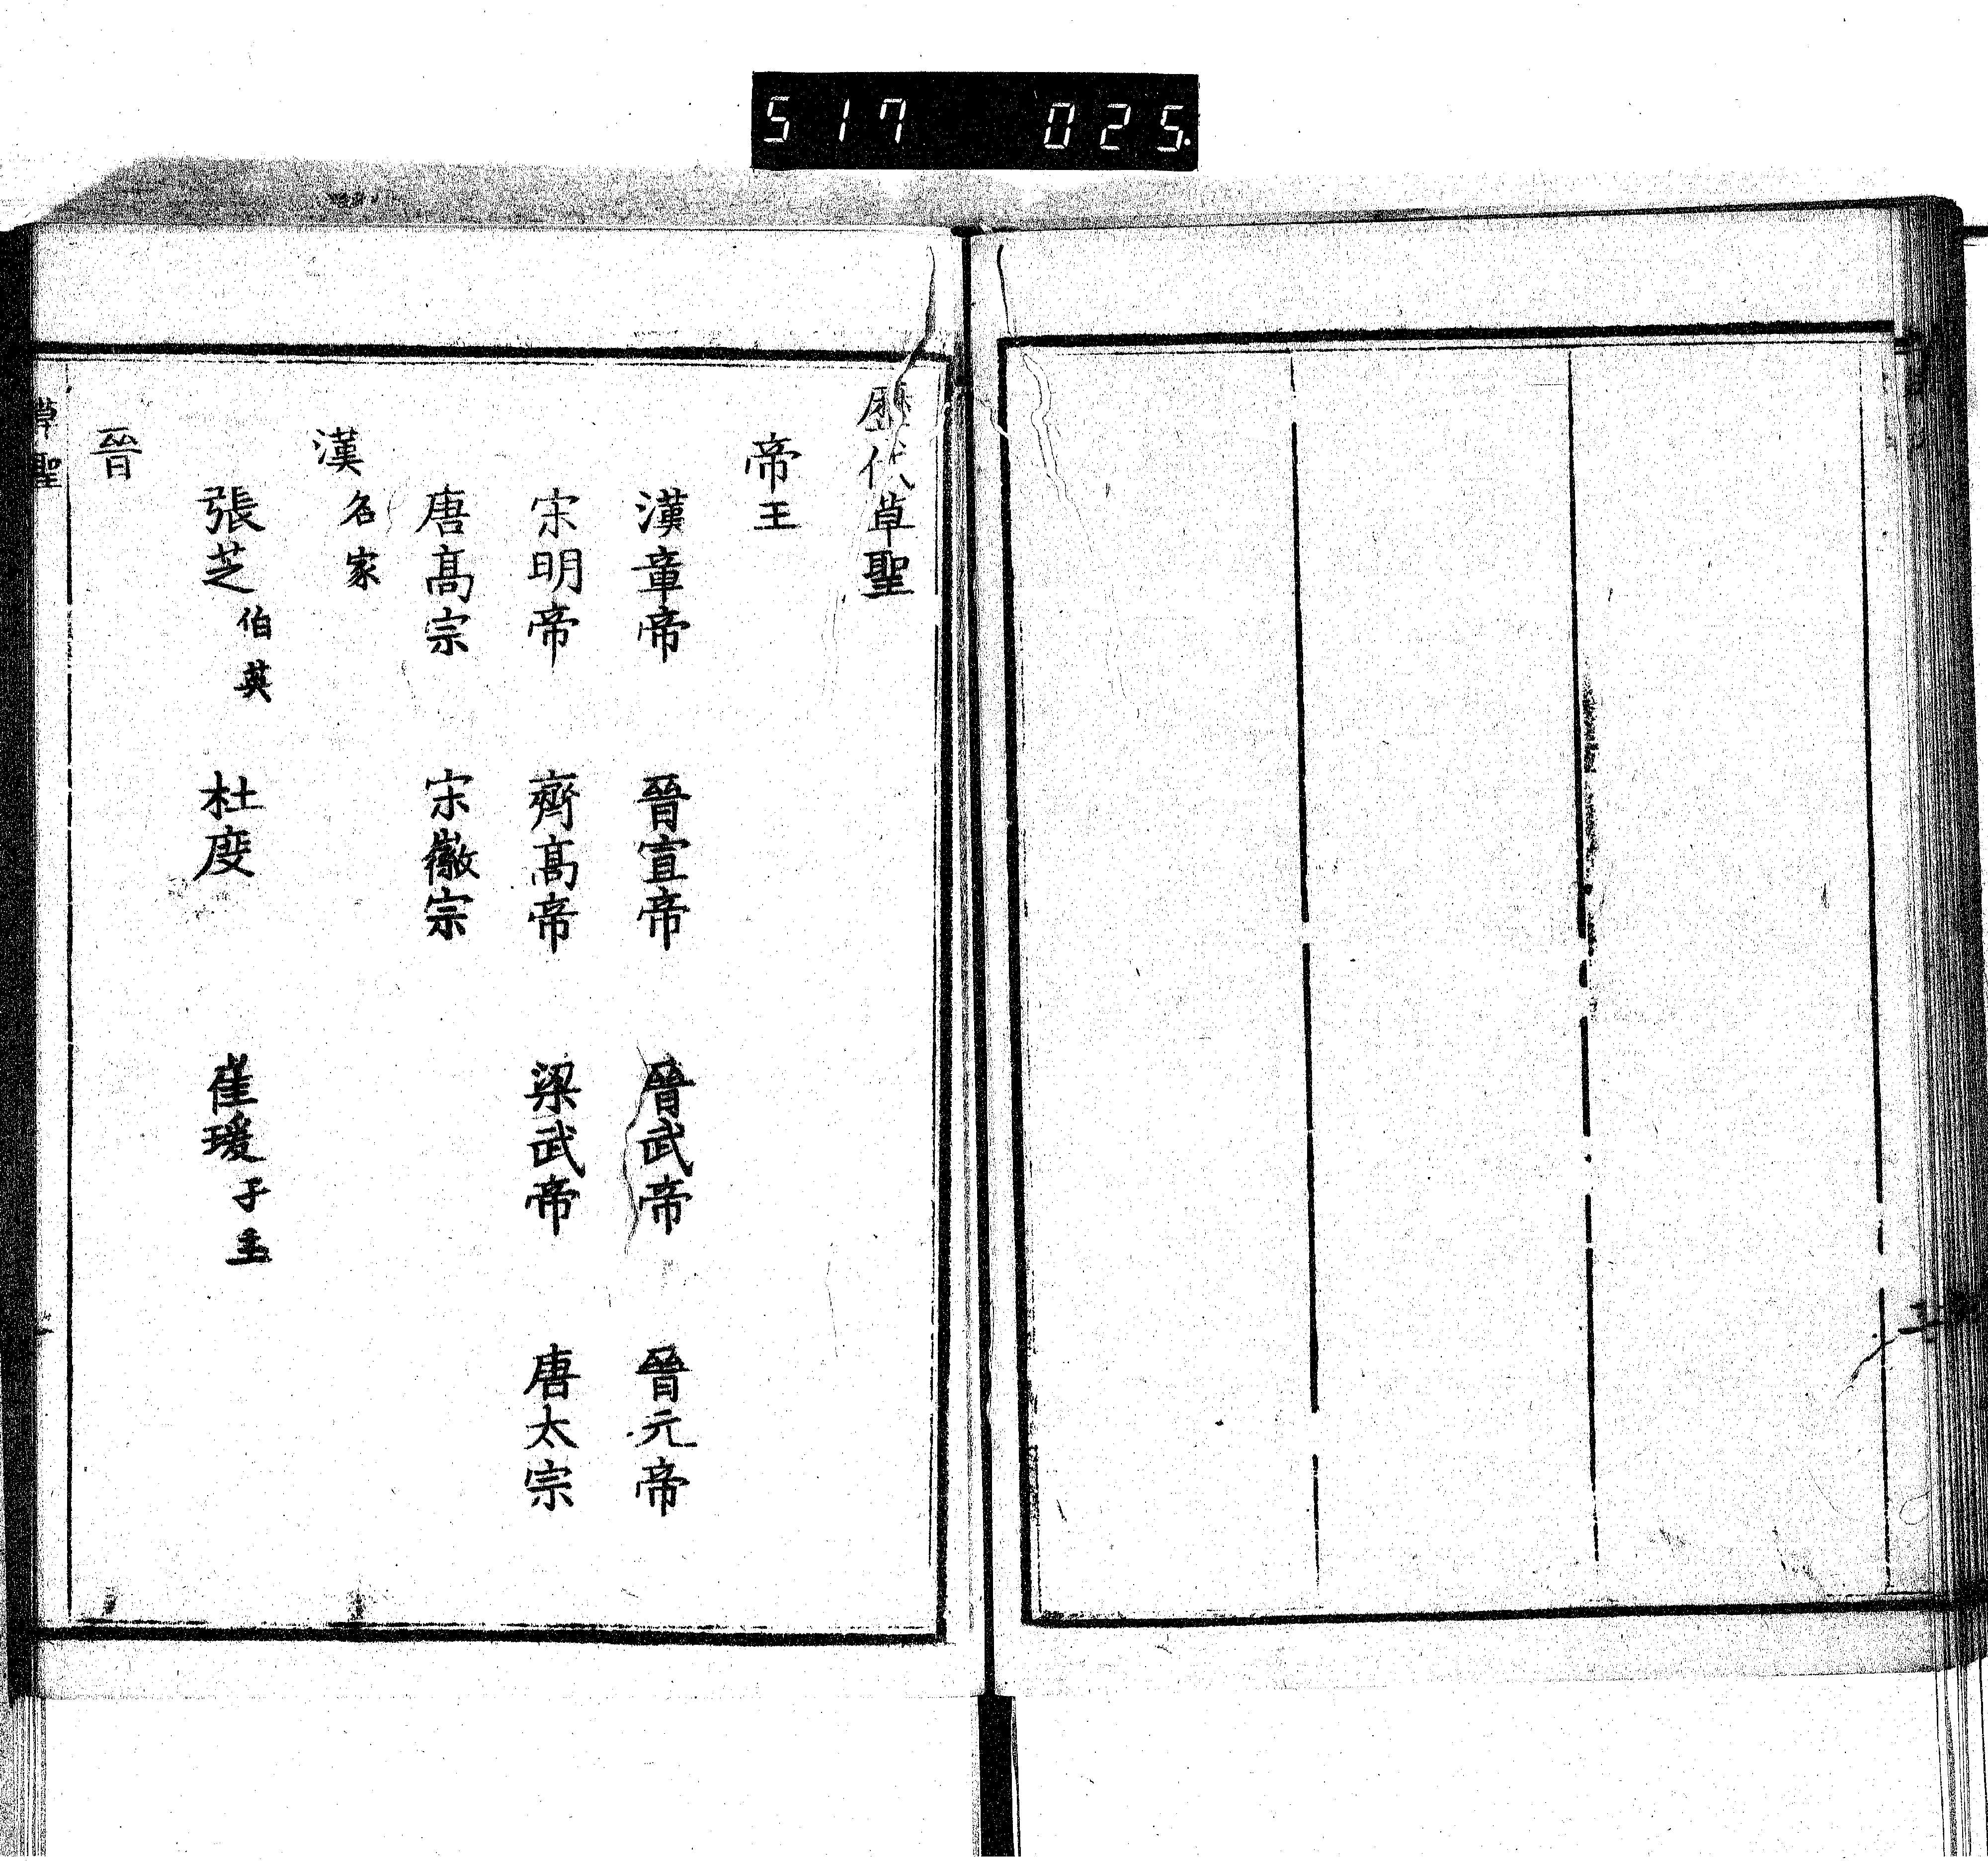 517 025
歷代草聖
帝王
漢章帝 晉宣帝 晉武帝 晉元帝
宋明帝 齊高帝 梁武帝 唐太宗
唐高宗 宋徽宗
漢名家
張芝伯英 杜度 崔瑗子玉
晉
草聖